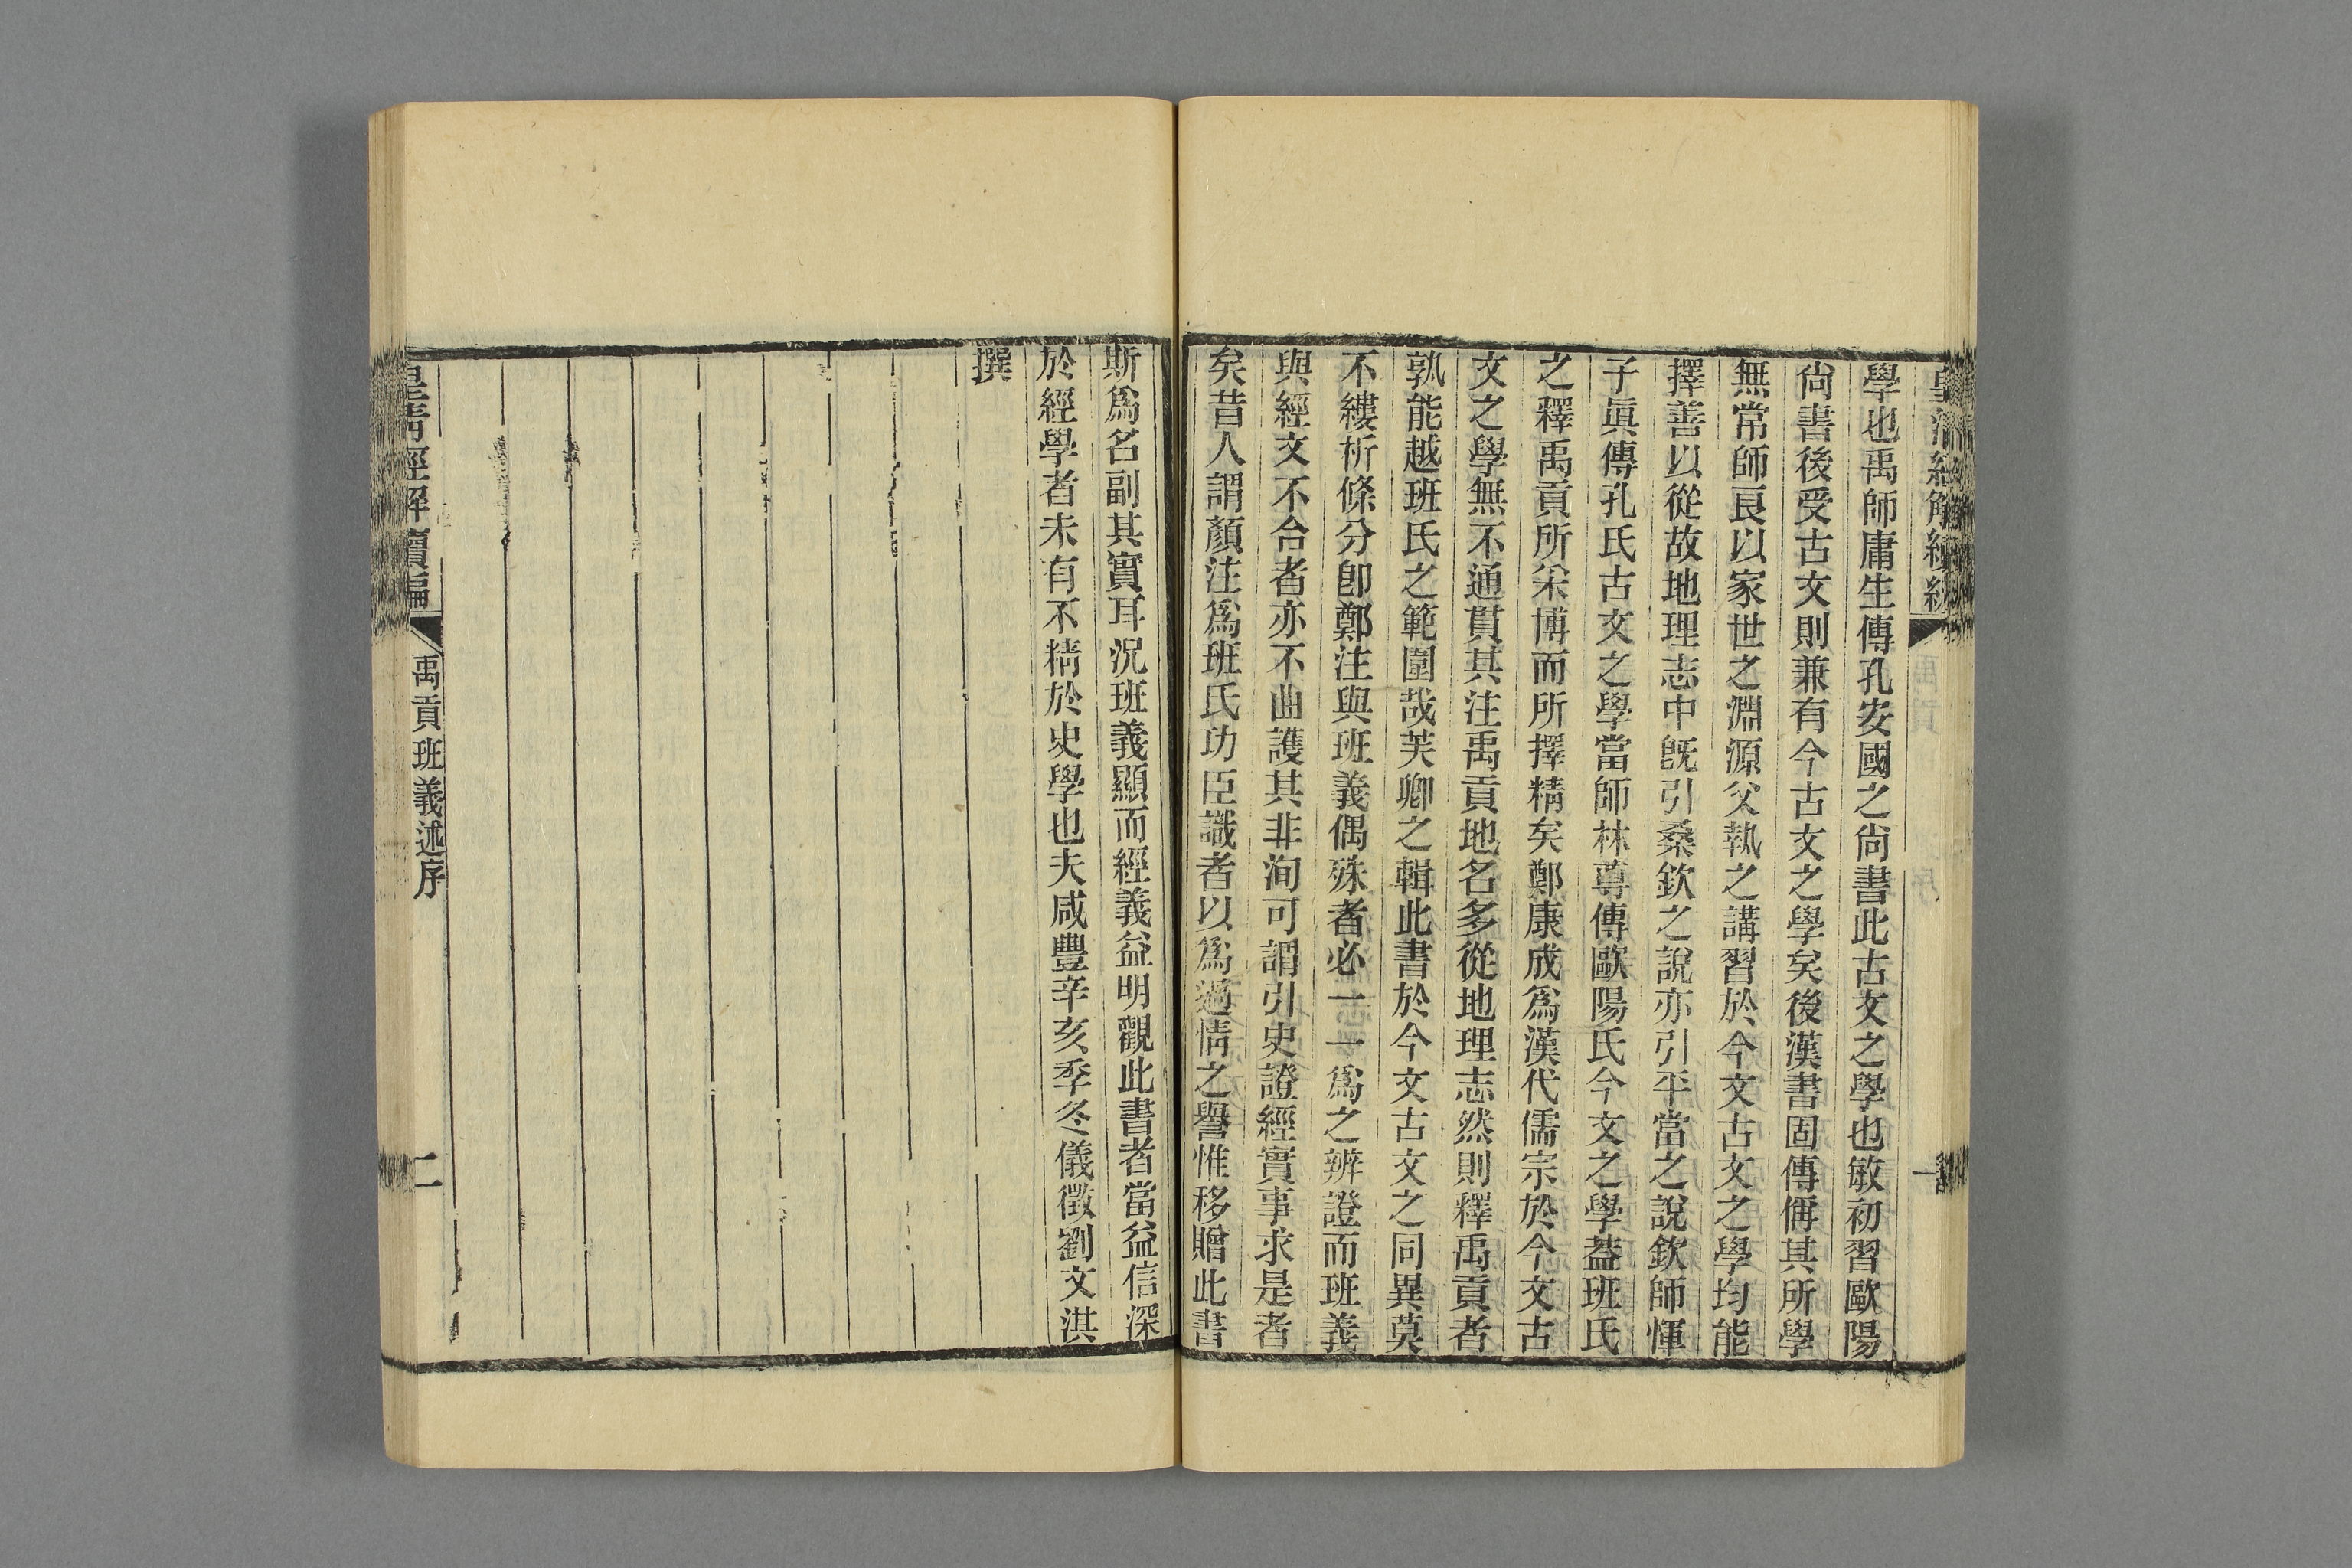 學也禹師庸生傳孔安國之尙書此古文之學也敏初習歐陽
尙書後受古文則兼有今古文之學矣後漢書固傳偁其所學
無常師良以家世之淵源父執之講習於今文古文之學均能
擇善以從故地理志中旣引桑欽之說亦引平當之說欽師惲
子眞傳孔氏古文之學當師林尊傳歐陽氏今文之學葢班氏
之釋禹貢所采博而所擇精矣鄭康成爲漢代儒宗於今文古
文之學無不通貫其注禹貢地名多從地理志然則釋禹貢者
孰能越班氏之範圍哉芙卿之輯此書於今文古文之同異莫
不縷析條分卽鄭注與班義偶殊者必一一爲之辨證而班義
與經文不合者亦不曲護其非洵可謂引史證經實事求是者
矣昔人謂顏注爲班氏功臣識者以爲過情之譽惟移贈此書
斯爲名副其實耳況班義顯而經義益明觀此書者當益信深
於經學者未有不精於史學也夫咸豐辛亥季冬儀徵劉文淇
撰
皇清經解續編
禹貢班義述序
二